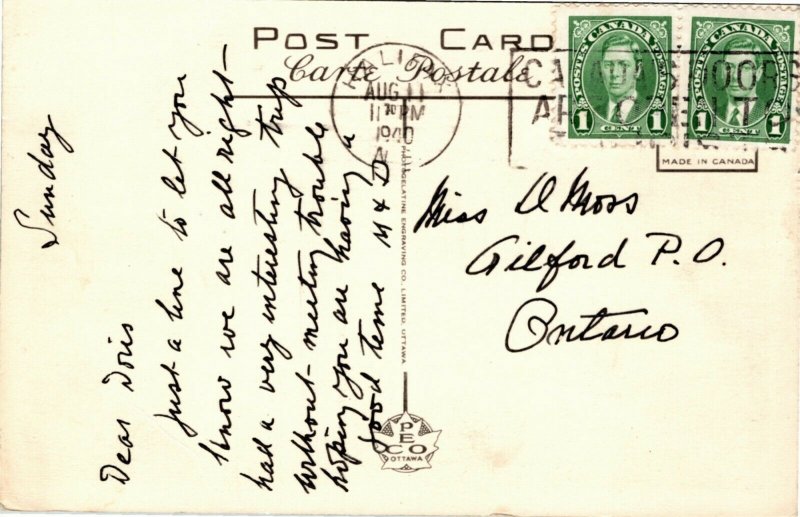 POST CARD
Carte Postale
HALIFAX
AUG 11
11 PM
1940
N.
POSTES CANADA POSTAGE
1 CENT 1
POSTES CANADA POSTAGE
1 CENT 1
MADE IN CANADA
Sunday
Dear Doris
Just a line to let you
know we are all right -
had a very interesting trip
without meeting trouble
hoping you are having a
good time M & D
PHOTOGELATINE ENGRAVING CO., LIMITED, OTTAWA
PECO
OTTAWA
Miss D Moss
Gilford P.O.
Ontario